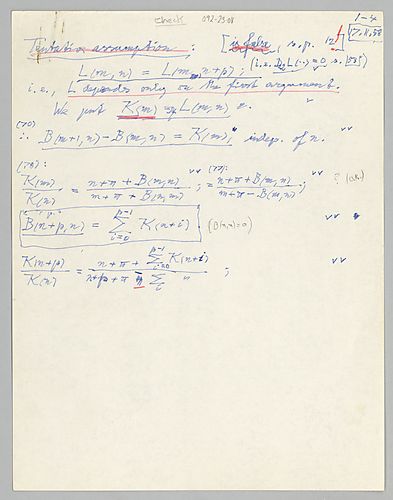 check 092-23-08
1-4
17.11.58
Tentative assumption: [is false, s. p. 12]
L(m, n) = L(m, n+p); (i.e. D₂L(··) = 0 s. (85))
i.e., L depends only on the first argument.
We put K(m) = L(m, n) v
(70)
∴ B(m+1, n) - B(m, n) = K(m), indep. of n. vv
(78):
K(m)/K(n) = (n + π + B(m,n))/(m + π + B(n,m)) vv (77): = (n + π + B(m,n))/(m + π - B(m,n)); vv ? (O.K.)
B(n+p, n) = ∑_{i=0}^{p-1} K(n+i) . (B(n,n)=0) vv
K(n+p)/K(n) = (n + π + ∑_{i=0}^{p-1} K(n+i))/(n+p+π - ∑_i "); vv